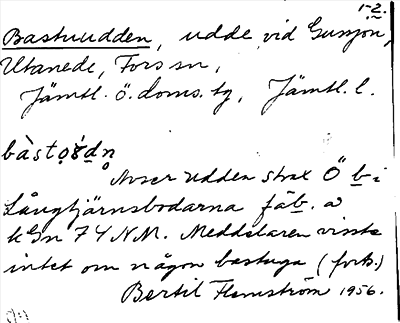 1-2.
Bastuudden, udde vid Gussjön,
Utanede, Fors sn,
Jämtl. ö. doms. tg, Jämtl. l.
bàstọ́ꞩd̲n̥
Avser udden strax Ö b i
Långtjärnsbodarna fäb. a
k Gn 74 NM. Meddelaren visste
intet om någon bastuga (forts.)
Bertil Flemström 1956.